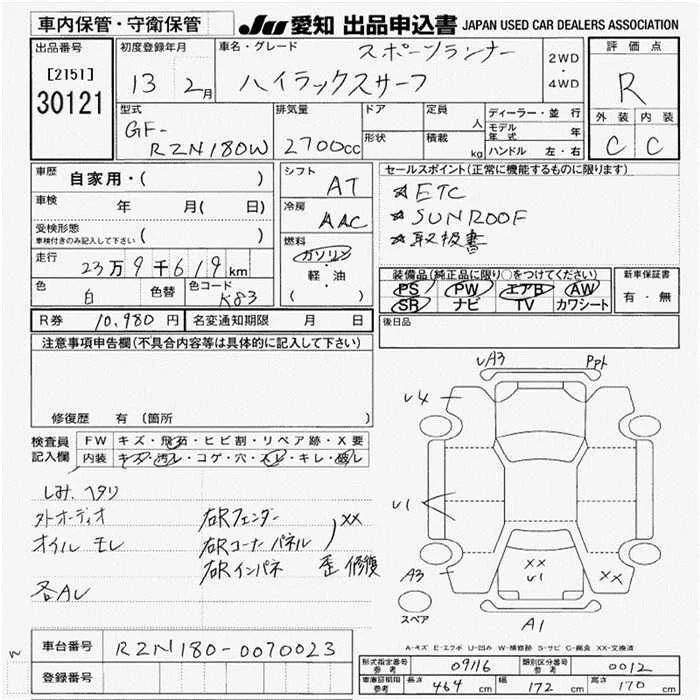 車内保管・守衛保管
JU 愛知 出品申込書 JAPAN USED CAR DEALERS ASSOCIATION
出品番号
[2151]
30121
初度登録年月
13 2月
車名・グレード
スポーツランナー
ハイラックスサーフ
2WD
・
4WD
評価点
R
外装 内装
C C
型式
GF-
RZN180W
排気量
2700cc
ドア
形状
定員 人
積載 kg
ディーラー・並行
モデル年式 年
ハンドル 左・右
車歴 自家用・( )
車検 年 月( 日)
受検形態
車検付きのみ記入して下さい ( )
走行
23万9千619km
色 白 色替 色コード K83
シフト
AT
冷房
AAC
燃料
ガソリン
軽・油
( )
セールスポイント(正常に機能するものに限ります)
☆ETC
☆SUNROOF
☆取扱書
装備品(純正品に限り○をつけてください)
PS PW エアB AW
SR ナビ TV カワシート
新車保証書
有・無
R券 10,980円 名変通知期限 月 日
後日品
注意事項申告欄(不具合内容等は具体的に記入して下さい)
修復歴 有(箇所 )
検査員記入欄
FW キズ・飛石・ヒビ割・リペア跡・X要
内装 キズ・汚レ・コゲ・穴・スレ・キレ・破レ
しみ、ヘタリ
外オーディオ
オイルモレ
各AU
右Rフェンダー
右Rコーナーパネル
XX
右Rインパネ 歪 修復
UA3
Ppt
U4
U1
A3
XX
U1
XX
A1
スペア
A-キズ E-エクボ U-凹み W-補修跡 S-サビ C-腐食 XX-交換済
車台番号 RZN180-0070023
登録番号
形式指定番号 参考 09116 類別区分番号 参考 0012
車庫証明期限 参考 長さ 464cm 幅 172cm 高さ 170cm